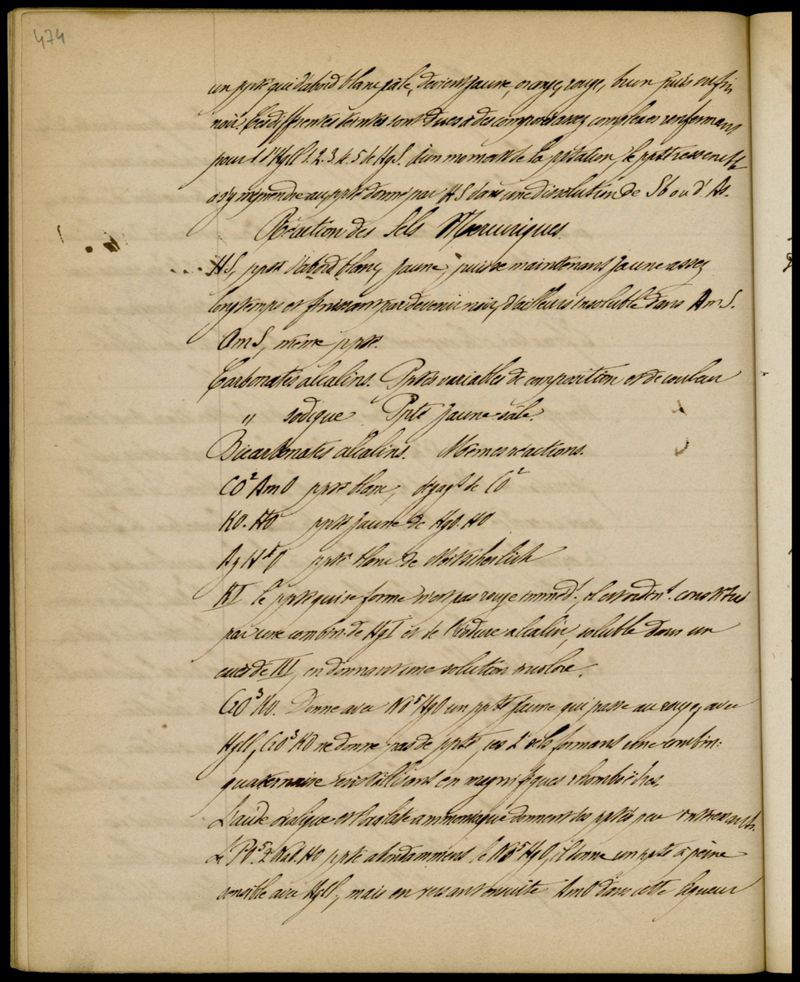 474
un ppté qui d'abord blanc sale, devient jaune, orangé, rouge, brun puis enfin
noir. Ces différentes teintes sont dues à des composés assez complexes renfermant
pour 1 d'HgCl 1.2.3.4.5 de HgS. à un moment de la pptation le ppté ressemble
à s'y méprendre au ppté donné par HS dans une dissolution de Sb ou d'As.
Réaction des Sels Mercuriques
HS, ppté d'abord blanc, jaune, puis se maintenant jaune assez
longtemps et finissant par devenir noir, d'ailleurs insoluble dans AmS.
AmS, même ppté.
Carbonates alcalins. Pptés variables de composition et de couleur
" sodique Ppté jaune sale.
Bicarbonates alcalins. Mêmes réactions.
CO² AmO ppté blanc, dégagt de CO²
KO.HO ppté jaune de HgO.HO
ppté blanc de
KI. le ppté qui se forme n'est pas rouge immédt, il est constitué
par une combin de HgI et de l'iodure alcalin, soluble dans un
excès de KI, en donnant une solution incolore.
CrO³KO. Donne avec NO⁵HgO un ppté jaune qui passe au rouge, avec
HgCl, CrO³KO ne donne pas de ppté, ces 2 sels formant une combin:
quaternaire cristallisant en magnifiques rhomboèdres.
L'acide oxalique et l'oxalate ammonique donnent des pptés peu
Le PO⁵.2NaO.HO ppte abondamment le NO⁵HgO, il donne un ppté à peine
sensible avec HgCl, mais en versant ensuite AmO dans cette liqueur